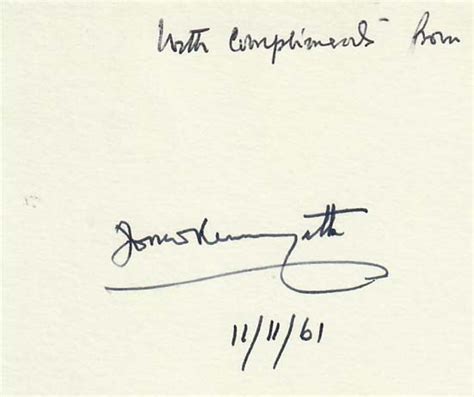 With Compliments from
Jomo Kenyatta
11/11/61